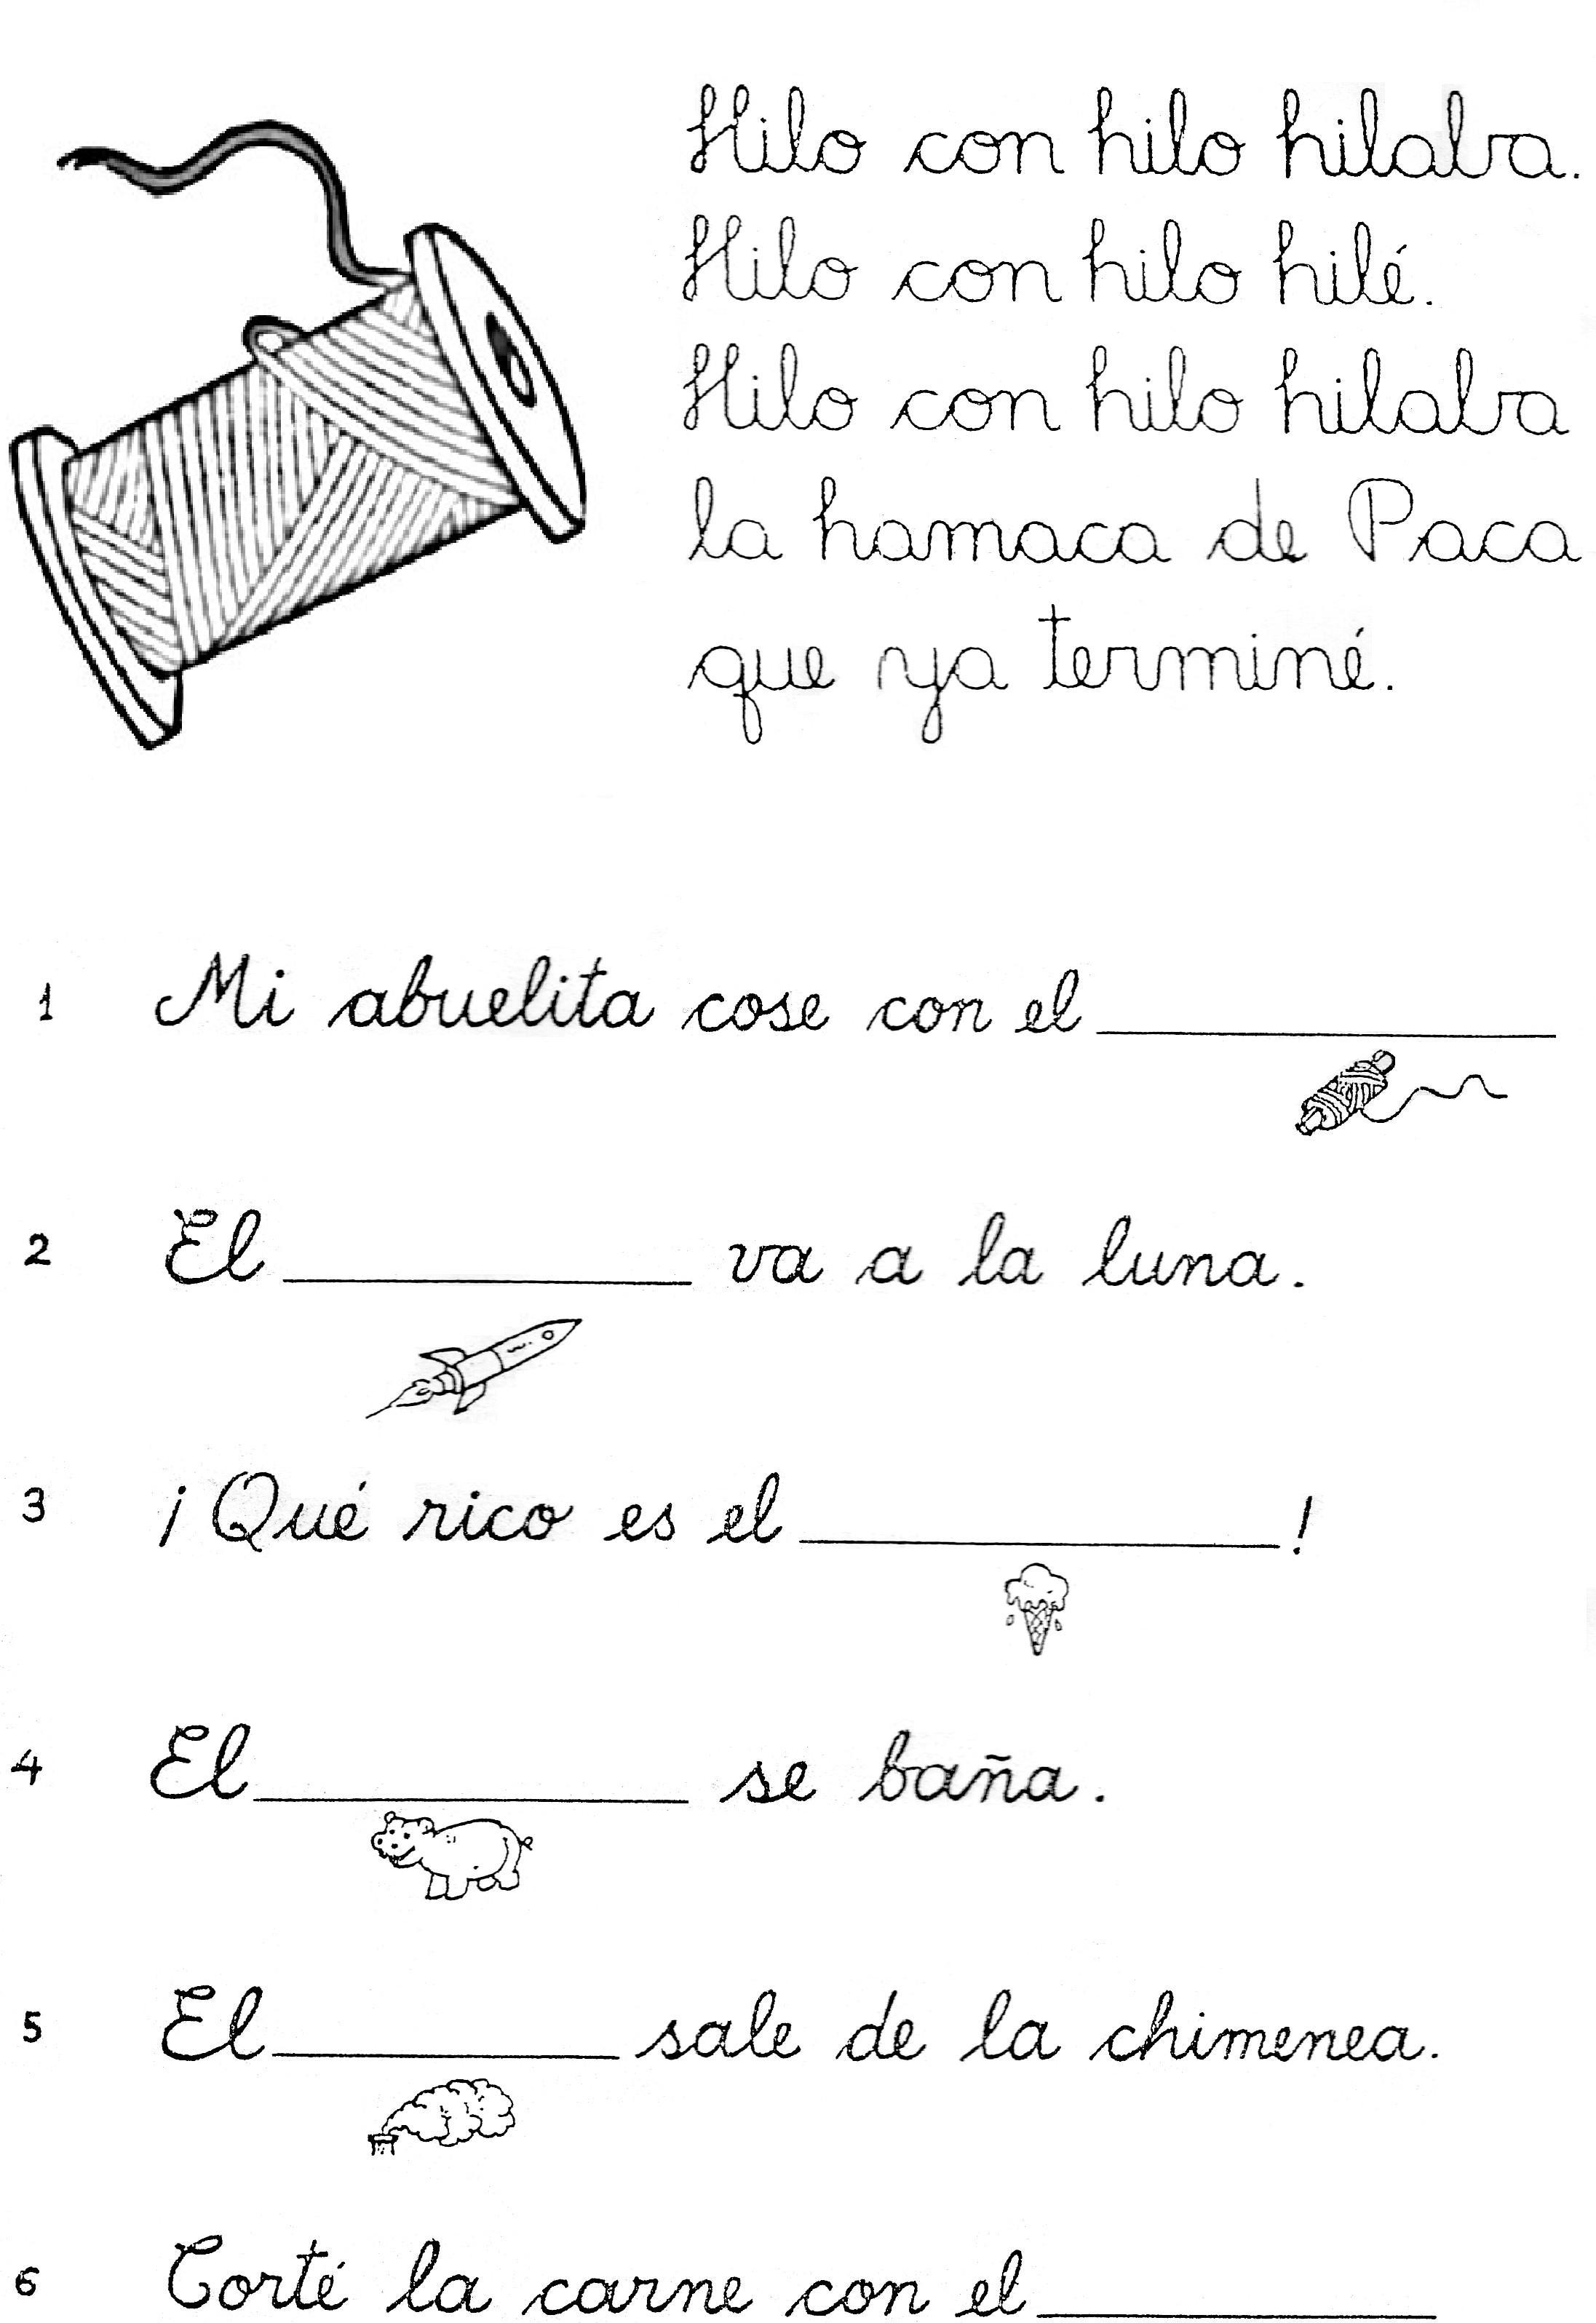 Hilo con hilo hilaba.
Hilo con hilo hilé.
Hilo con hilo hilaba
la hamaca de Paca
que ya terminé.
1 Mi abuelita cose con el
2 El va a la luna.
3 ¡Qué rico es el !
4 El se baña.
5 El sale de la chimenea.
6 Corté la carne con el